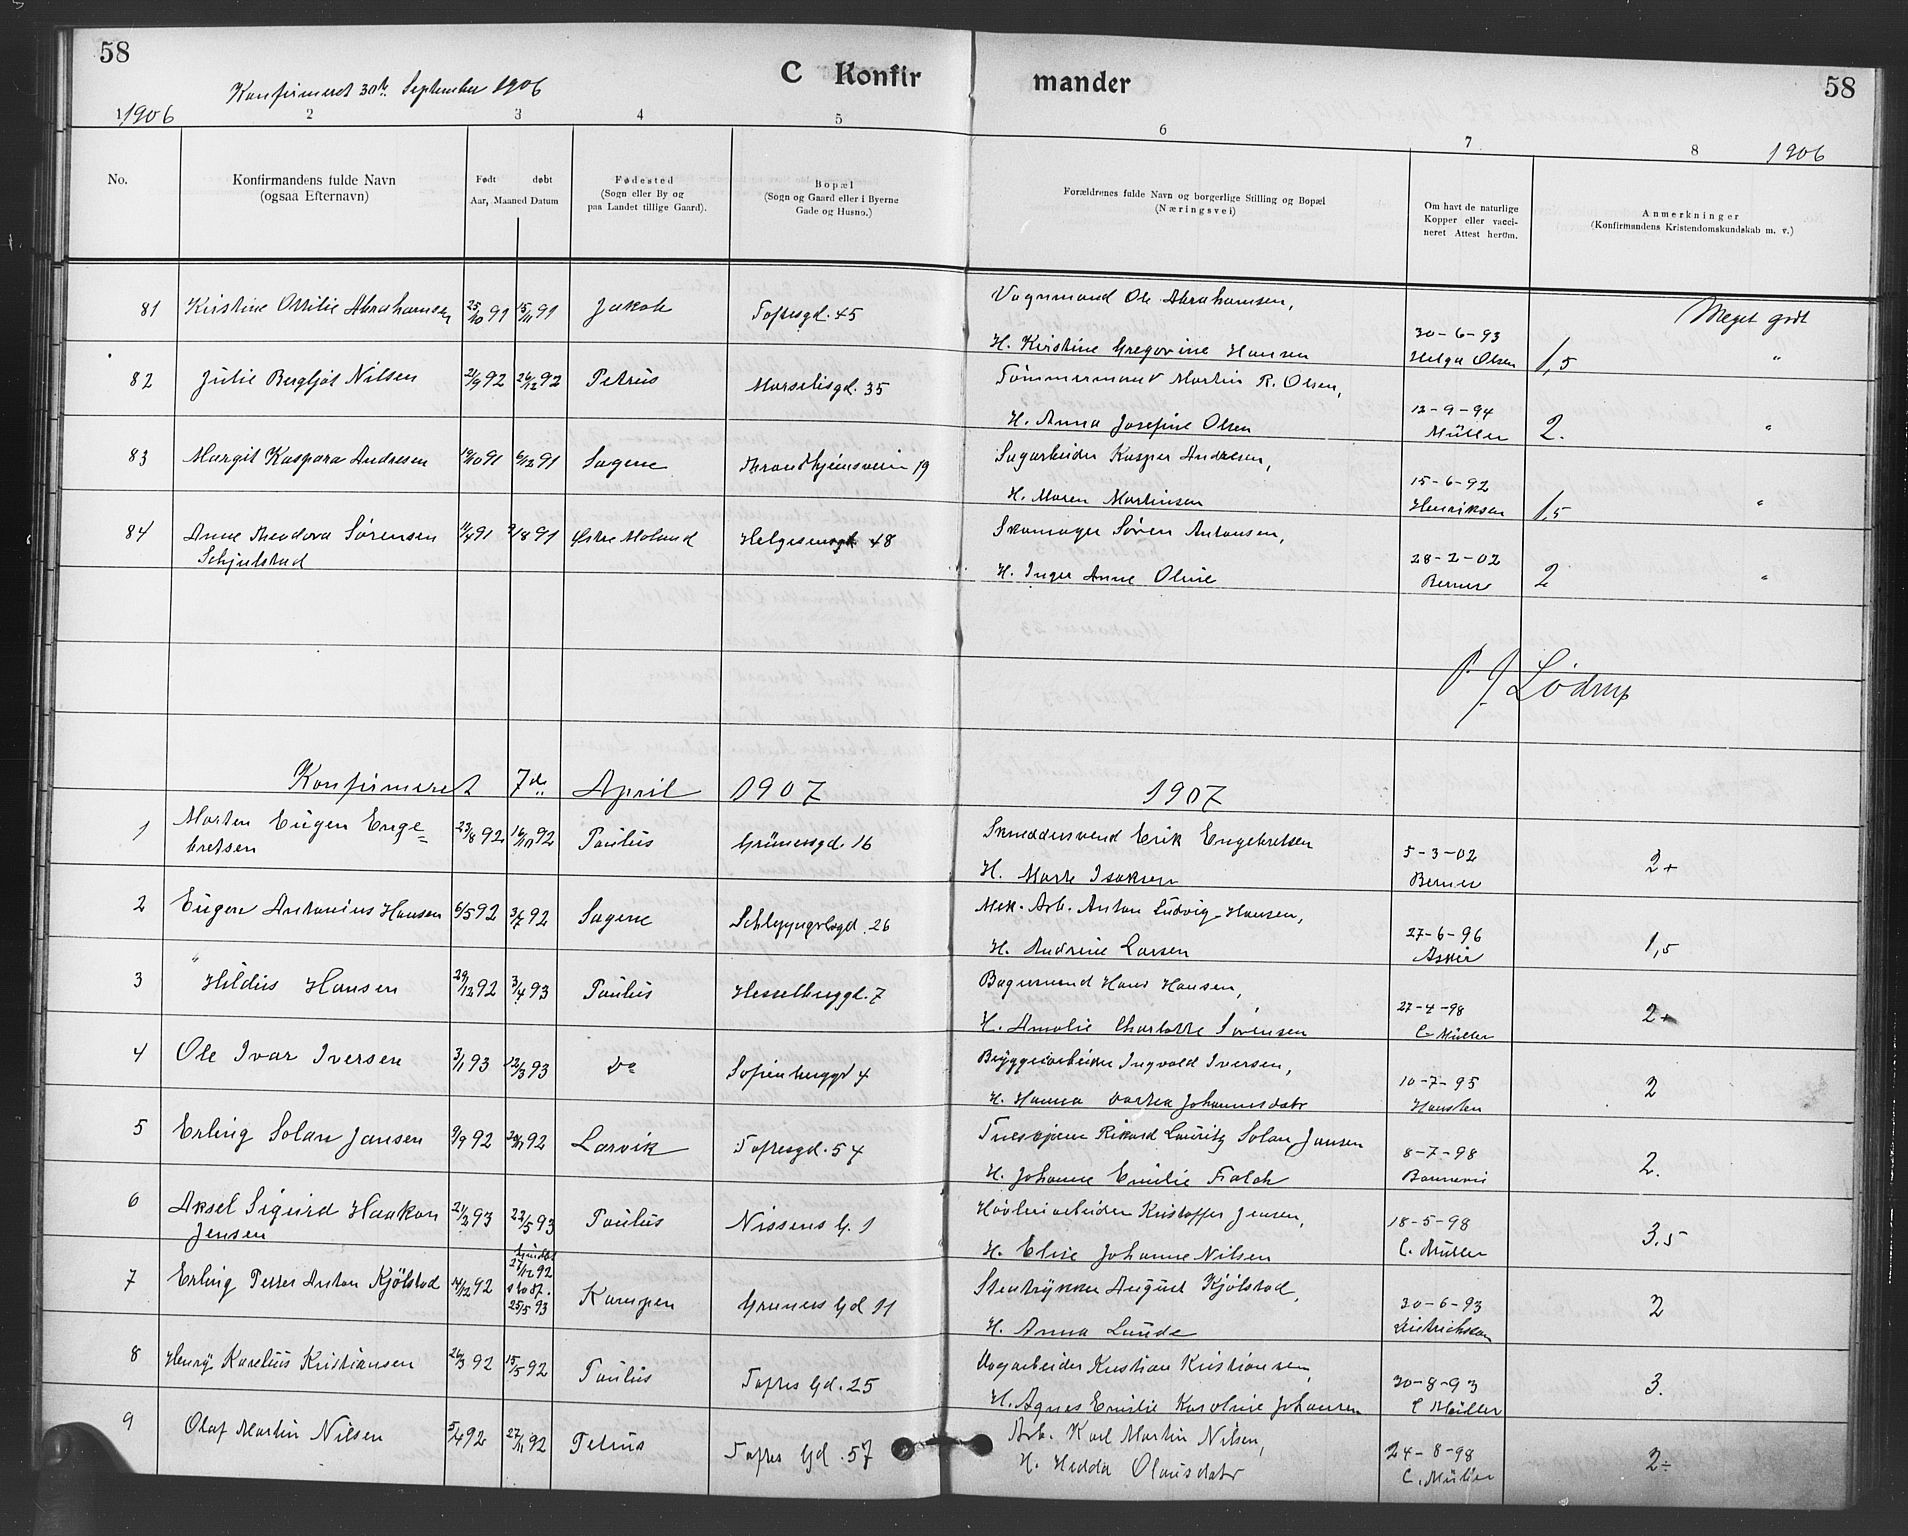 58
C Konfirmander
58
Konfirmeret 30te September 1906
1906
1 2 3 4 5 6 7 8
1906
No.
Konfirmandens fulde Navn (ogsaa Efternavn)
Født døbt Aar, Maaned Datum
Fødested (Sogn eller By og paa Landet tillige Gaard).
Bopæl (Sogn og Gaard eller i Byerne Gade og Husno.)
Forældrenes fulde Navn og borgerlige Stilling og Bopæl (Næringsvei)
Om havt de naturlige Kopper eller vaccineret Attest herom.
Anmerkninger (Konfirmandens Kristendomskundskab m. v.)
81 Kristine Ottilie Abrahamsen 25/10 91 15/11 91 Jakob Toftesgd. 45 Vognmand Ole Abrahamsen,
H. Kristine Gregorine Hansen 30-6-93 Helga Olsen 1,5 Meget godt
82 Julie Bergljot Nilsen 21/9 92 26/12 92 Petrus Marselisgd. 35 Tømmermand Martin R. Olsen,
H. Anna Josefine Olsen 12-9-94 Müller 2. "
83 Margit Kaspara Andresen 19/10 91 6/12 91 Sagene Throndhjemsveien 19 Sagarbeider Kasper Andresen,
H. Maren Martinsen 15-6-92 Henriksen 1,5 "
84 Anne Theodora Sørensen 11/4 91 9/8 91 Østre Moland Helgesensgt 48 Skomager Søren Antonsen,
Schjulstad H. Inger Anne Oline 28-2-02 Berner 2 "
P. J. Lødrup
Konfirmeret 7de April 1907 1907
1 Morten Eugen Enge= 23/8 92 16/11 92 Paulus Grünersgd. 16 Skreddersvend Erik Engebretsen
bretsen H. Marte Isaksen 5-3-02 Berner 2+
2 Eugen Antonius Hansen 6/5 92 3/7 92 Sagene Schleppegrelsgd. 26 Mek. Arb. Anton Ludvig Hansen,
H. Andrine Larsen 27-6-96 Asker 1,5
3 " Hildus Hansen 29/12 92 3/4 93 Paulus Hesselberggd. 7 Bagersvend Hans Hansen,
H. Amalie Charlotte Sørensen 27-4-98 C Müller 2+
4 Ole Ivar Iversen 3/1 93 12/3 93 Do Sofienberggd 4 Bryggeriarbeider Ingvald Iversen,
H. Hanna Dortea Johannesdatr 10-7-95 Hansten 2
5 Erling Solan Jansen 9/9 92 92 Larvik Toftesgd. 54 Rikard Lauritz Solan Jansen
H. Johanne Emilie Falch 8-7-98 Bonnevie 2.
6 Aksel Sigurd Haakon 21/2 93 22/5 93 Paulus Nissens G. 1 Høvleriarbeider Kristoffer Jensen,
Jensen H. Elise Johanne Nilsen 18-5-98 C. Müller 3.5
7 Erling Petter Anton Kjølstad 14/12 92 hjemdøbt 27/12 92 stadf. 25/5 93 Kampen Gruners Gd 11 Stentrykker August Kjølstad,
H. Anna Lunde 30-6-93 Dietrichson 2
8 Henry Karelius Kristiansen 26/3 92 15/5 92 Paulus Toftes Gd. 25 Vogarbeider Kristian Kristiansen,
H. Agnes Emilie Karoline Johansen 30-8-93 C Müller 3.
9 Olaf Martin Nilsen 5/4 92 27/11 92 Petrus Toftes Gd. 57 Arb. Karl Martin Nilsen,
H. Hedda Olausdatr 24-8-98 C. Müller 2÷